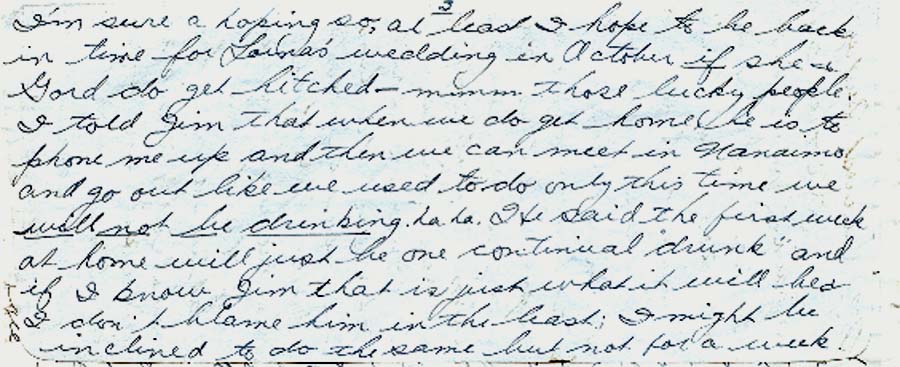 3
I'm sure a hoping so, at least I hope to be back
in time for Lorna's wedding in October if she &
Gord do get hitched — mmm those lucky people.
I told Jim that when we do get home he is to
phone me up and then we can meet in Nanaimo
and go out like we used to do only this time we
will not be drinking. ha ha. He said the first week
at home will just be one continual "drunk" and
if I know Jim that is just what it will be &
I don't blame him in the least; I might be
inclined to do the same but not for a week!